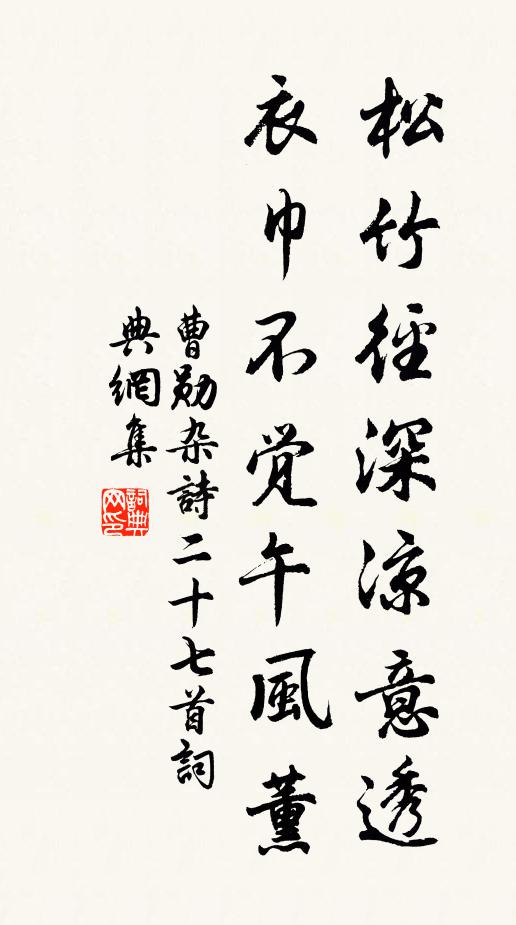 松竹径深凉意透
衣巾不觉午風薰
曹勋杂詩二十七首詞
典網集
詞典
网印